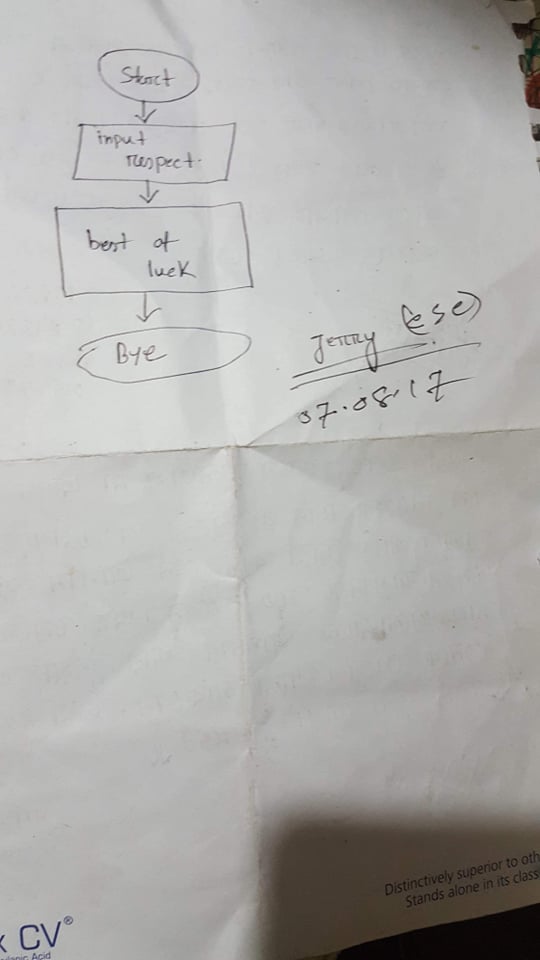 Start
input
respect.
best of
luck
Bye
Jerry (ese)
07.08.17
Distinctively superior to oth
Stands alone in its class
x CV®
ulanic Acid